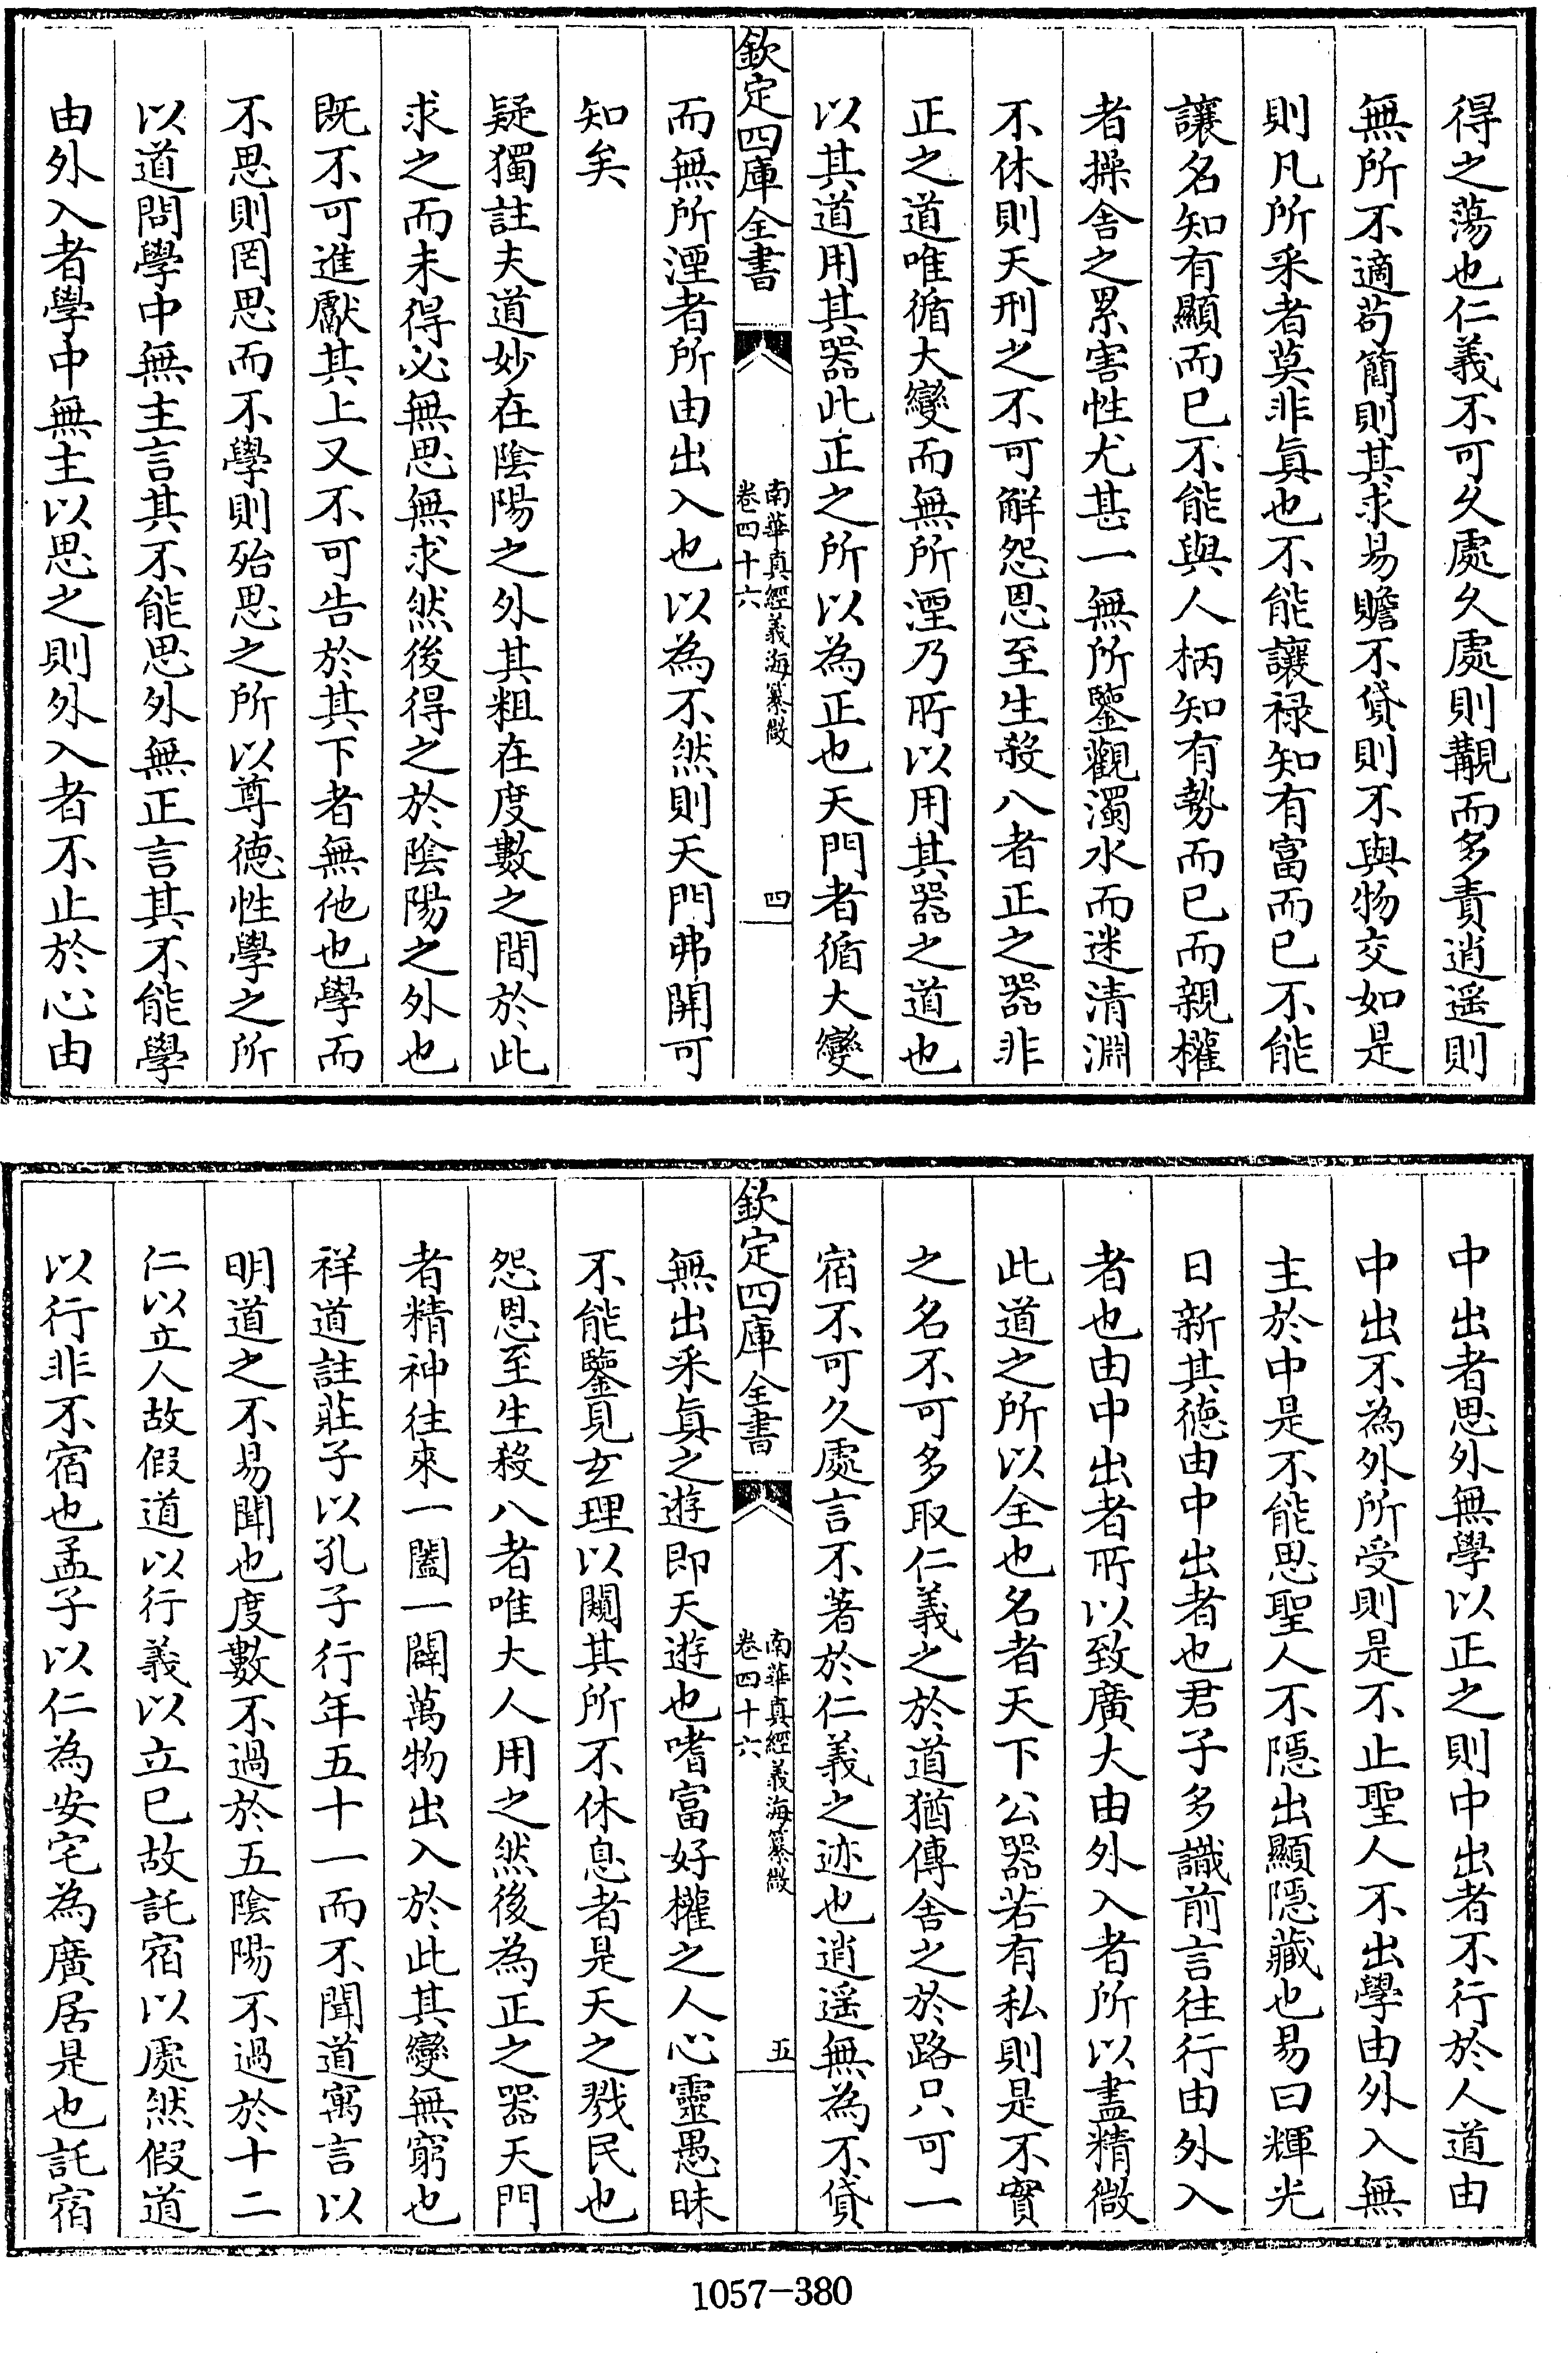 得之蕩也仁義不可久處久處則覯而多責逍遥則
無所不適苟簡則其求易贍不貸則不與物交如是
則凡所采者莫非眞也不能讓禄知有富而已不能
讓名知有顯而已不能與人柄知有勢而已而親權
者操舍之累害性尤甚一無所鑒觀濁水而迷清淵
不休則天刑之不可解怨恩至生殺八者正之器非
正之道唯循大變而無所湮乃所以用其器之道也
以其道用其器此正之所以為正也天門者循大變
欽定四庫全書
南華真經義海纂微
卷四十六
四
而無所湮者所由出入也以為不然則天門弗開可
知矣
疑獨註夫道妙在陰陽之外其粗在度數之間於此
求之而未得必無思無求然後得之於陰陽之外也
既不可進獻其上又不可告於其下者無他也學而
不思則罔思而不學則殆思之所以尊德性學之所
以道問學中無主言其不能思外無正言其不能學
由外入者學中無主以思之則外入者不止於心由
中出者思外無學以正之則中出者不行於人道由
中出不為外所受則是不止聖人不出學由外入無
主於中是不能思聖人不隱出顯隱藏也易曰輝光
日新其德由中出者也君子多識前言往行由外入
者也由中出者所以致廣大由外入者所以盡精微
此道之所以全也名者天下公器若有私則是不實
之名不可多取仁義之於道猶傳舍之於路只可一
宿不可久處言不著於仁義之迹也逍遥無為不貸
欽定四庫全書
南華真經義海纂微
卷四十六
五
無出采眞之遊即天遊也嗜富好權之人心靈愚昧
不能鑒見玄理以闚其所不休息者是天之戮民也
怨恩至生殺八者唯大人用之然後為正之器天門
者精神往來一闔一闢萬物出入於此其變無窮也
祥道註莊子以孔子行年五十一而不聞道寓言以
明道之不易聞也度數不過於五陰陽不過於十二
仁以立人故假道以行義以立已故託宿以處然假道
以行非不宿也孟子以仁為安宅為廣居是也託宿
1057-380